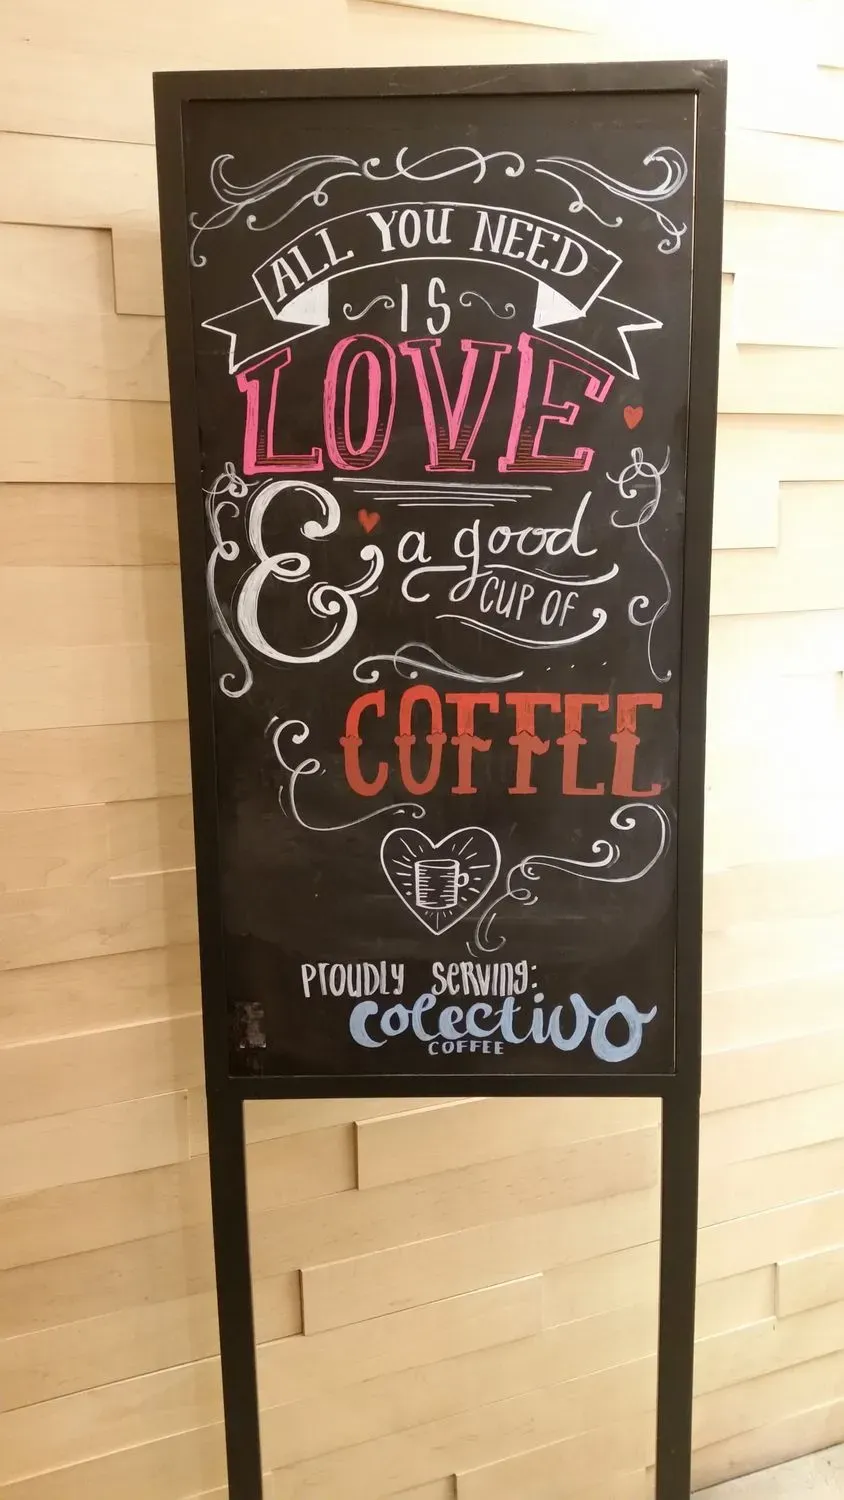 ALL YOU NEED
IS
LOVE
& a good
CUP OF
COFFEE
PROUDLY SERVING:
colectivo
COFFEE